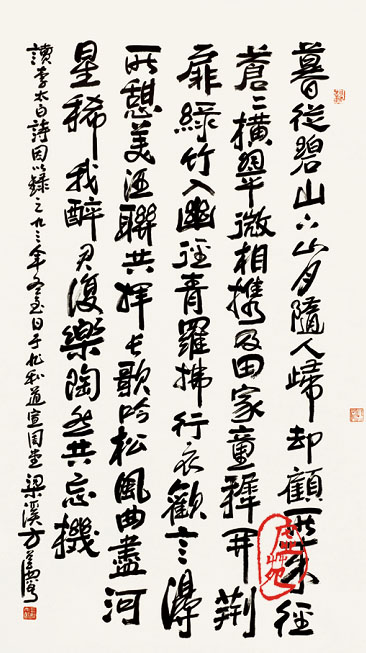 暮從碧山下山月隨人歸却顧所來径
蒼〻橫翠微相携及田家童稺開荆
扉綠竹入幽径青羅拂行衣歡言得
所憩美酒聊共揮長歌吟松風曲盡河
星稀我醉君復樂陶然共忘機
讀李太白詩因以錄之九三年冬至日于道宣堂梁溪方